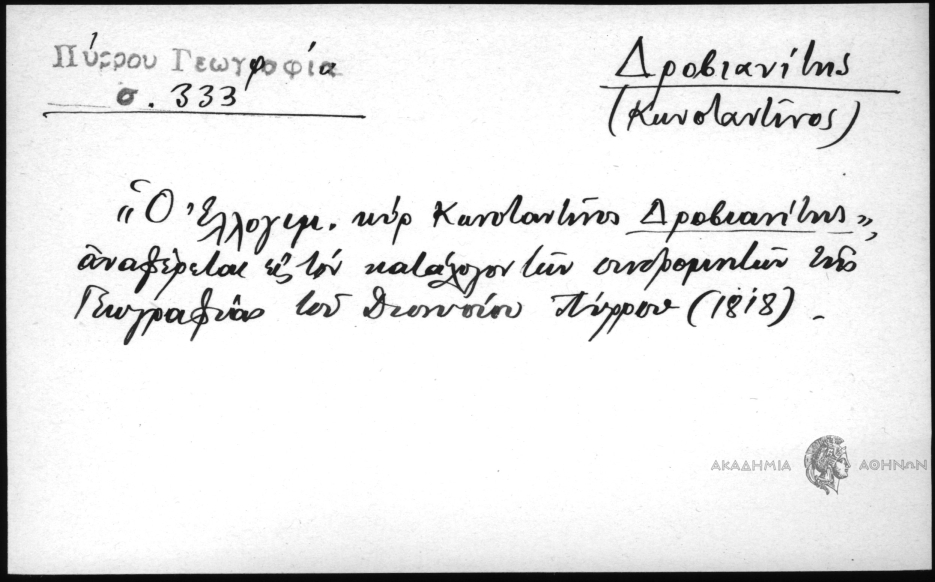 Πύρρου Γεωγραφία
σ. 333
Δροβιανίτης
(Κωνσταντῖνος)
"Ὁ Ἐλλογιμ. κύρ Κωνσταντῖνος Δροβιανίτης",
ἀναφέρεται εἰς τόν κατάλογον τῶν συνδρομητῶν τῆς
Γεωγραφίας τοῦ Διονυσίου Πύρρου (1818).
ΑΚΑΔΗΜΙΑ ΑΘΗΝΩΝ